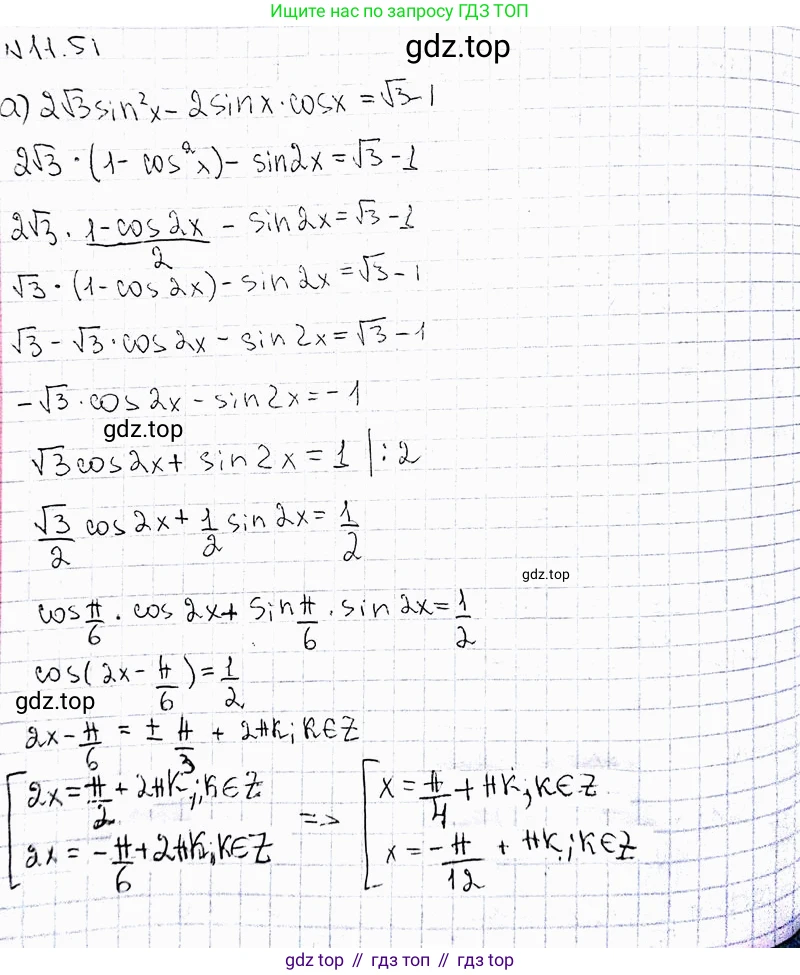 Ищите нас по запросу ГДЗ ТОП
N11.51
gdz.top
а) 2√3 sin²x - 2sinx·cosx = √3-1
2√3 · (1 - cos²x) - sin2x = √3 - 1
2√3 · (1-cos2x)/2 - sin2x = √3 - 1
√3 · (1-cos2x) - sin2x = √3 - 1
√3 - √3·cos2x - sin2x = √3 - 1
-√3·cos2x - sin2x = -1
gdz.top
√3cos2x + sin2x = 1 |:2
√3/2 cos2x + 1/2 sin2x = 1/2
gdz.top
cos π/6 · cos2x + sin π/6 · sin2x = 1/2
cos(2x - π/6) = 1/2
gdz.top
2x - π/6 = ± π/3 + 2πk; k∈Z
[ 2x = π/2 + 2πk; k∈Z => [ x = π/4 + πk, k∈Z
2x = -π/6 + 2πk, k∈Z x = -π/12 + πk; k∈Z
gdz.top // гдз топ // гдз топ